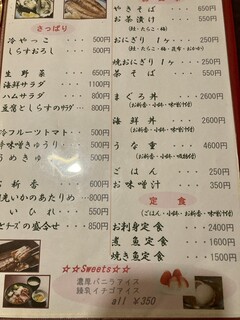 さっぱり
冷やっこ 500円
しらすおろし 500円
生野菜 650円
海鮮サラダ 1100円
ハムサラダ 800円
豆腐としらすのサラダ 800円
冷フルーツトマト 800円
500円
500円
600円
500円
どチーズの盛合せ 850円
☆☆Sweets☆☆
濃厚バニラアイス
練乳イチゴアイス
all ¥350
やきそば 650円
お茶漬け 550円
(鮭・たらこ・梅)
おにぎり 1ヶ 250円
(鮭・たらこ・梅・昆布・おかか)
焼おにぎり 1ヶ 250円
茶そば 550円
まぐろ丼 2600円
(お新香・小鉢・味噌汁付)
海鮮丼 2600円
(お新香・小鉢・味噌汁付)
うな重 4600円
(お新香・小鉢・吸物付)
ごはん 250円
お味噌汁 350円
定食
(ごはん・小鉢・お新香・味噌汁付)
お刺身定食 2400円
煮魚定食 1600円
焼き魚定食 1500円